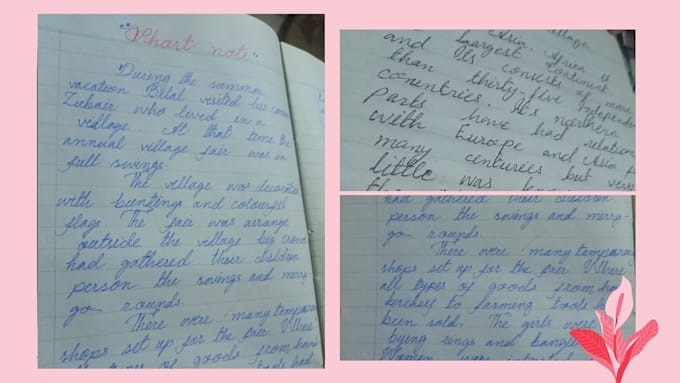 "Phart note"
"During the summer
vacation Bilal visited his
Zubair who lived in a
village. At that time the
annual village fair was in
full swings.
The village was decorate
with buntings and colourful
flags. The fair was arrange
outside the village big crowd
had gathered their children
person the swings and merry-
go rounds.
There were many tempora
shops set up for the fair Where
types of goods from
village
Asia. Africa is
and largest continent
Its consists of more
than thirty-five independen
countries. Its northern
parts have had relation
with Europe and Asia
many centuries but very
little was
had gathered their children
person the swings and merry-
go rounds.
There were many tempora
shops set up for the fair Where
all types of goods from
to farming tools
been sold. The girls were
bying rings and bangle
Women were